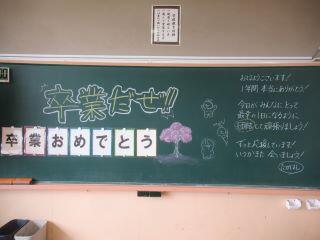 卒業だぜ!!
卒業おめでとう
おはようございます!
1年間本当にありがとう!
今日がみんなにとって
最高の1日になるように
して頑張りましょう!
ずっと応援しています!
いつかまた会いましょう!